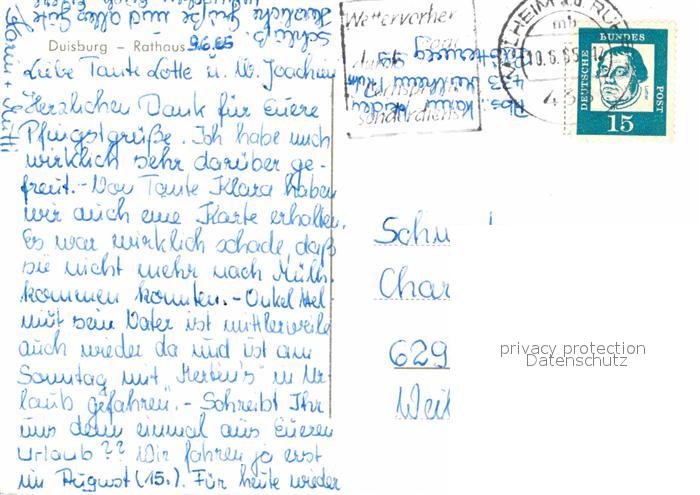 Duisburg – Rathaus 9.6.65
Liebe Tante Lotte u. Joachim
Herzlichen Dank für Euere
Pfingstgrüße. Ich habe mich
wirklich sehr darüber ge-
freut. - Von Tante Klara haben
wir auch eine Karte erhalten.
Es war wirklich schade, daß
sie nicht mehr nach Mülh.
kommen konnten. - Onkel Hel-
mut sein Vater ist mittlerweile
auch wieder da und ist am
Sonntag mit "Merten's" in Ur-
laub gefahren. - Schreibt Ihr
uns denn einmal aus Eueren
Urlaub?? Wir fahren ja erst
im August (15.). Für heute wieder
Schluß.
Herzliche Grüße und alles Gute
Karin +
Wettervorher
durch
Fernsprech
Sonderdienst
MÜLHEIM a.d. RU
mb
10.6.65
Abs.: Karin
433 Mülheim Ruhr
DEUTSCHE BUNDES POST
15
Schu
Char
629
Weil
privacy protection
Datenschutz